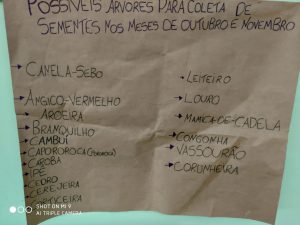 POSSÍVEIS ÁRVORES PARA COLETA DE
SEMENTES NOS MESES DE OUTUBRO E NOVEMBRO
→ CANELA-SEBO
→ ANGICO-VERMELHO
→ AROEIRA
→ BRANQUILHO
→ CAMBUÍ
→ CAPOROROCA
→ CAROBA
→ IPÊ
→ CEDRO
→ CEREJEIRA
CORTICEIRA
→ LEITEIRO
→ LOURO
→ MAMICA-DE-CADELA
→ CONGONHA
→ VASSOURÃO
→ CORUNHEIRA
SHOT ON MI 9
AI TRIPLE CAMERA